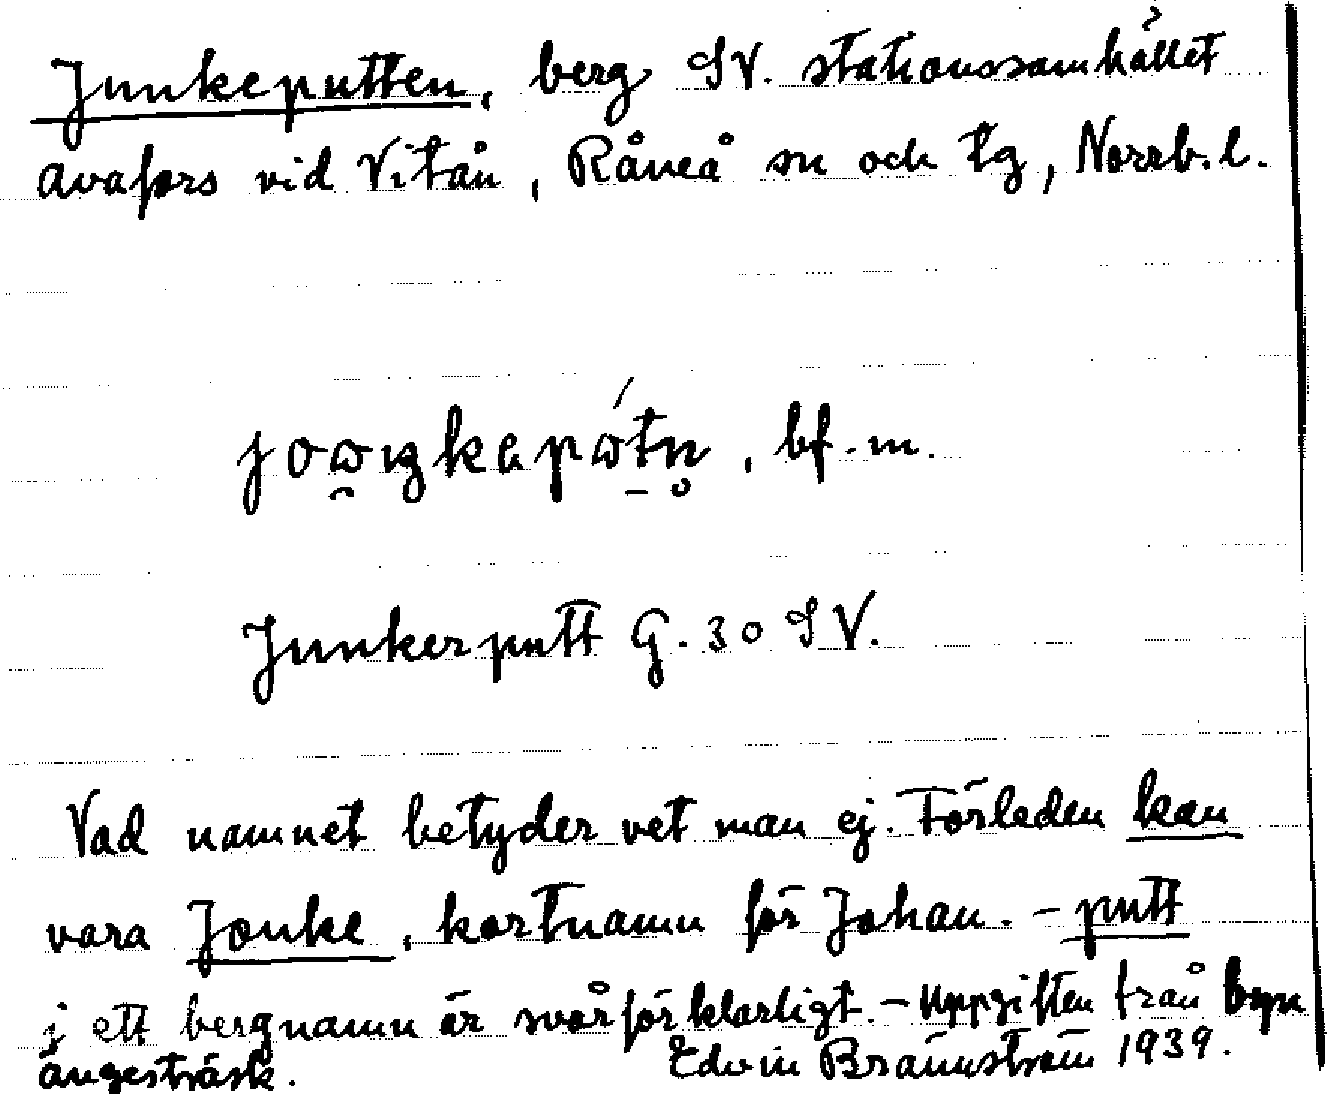 Junkeputten, berg SV. stationssamhället
Avafors vid Vitån, Råneå sn och tg, Norrb. l.
bf. m.
Junkerputt G. 30 SV.
Vad namnet betyder vet man ej. Förleden kan
vara Jonke, kortnamn för Johan. – putt
i ett bergnamn är svårförklarligt. – Uppgiften från byn
Ängesträsk. Edvin Brännström 1939.